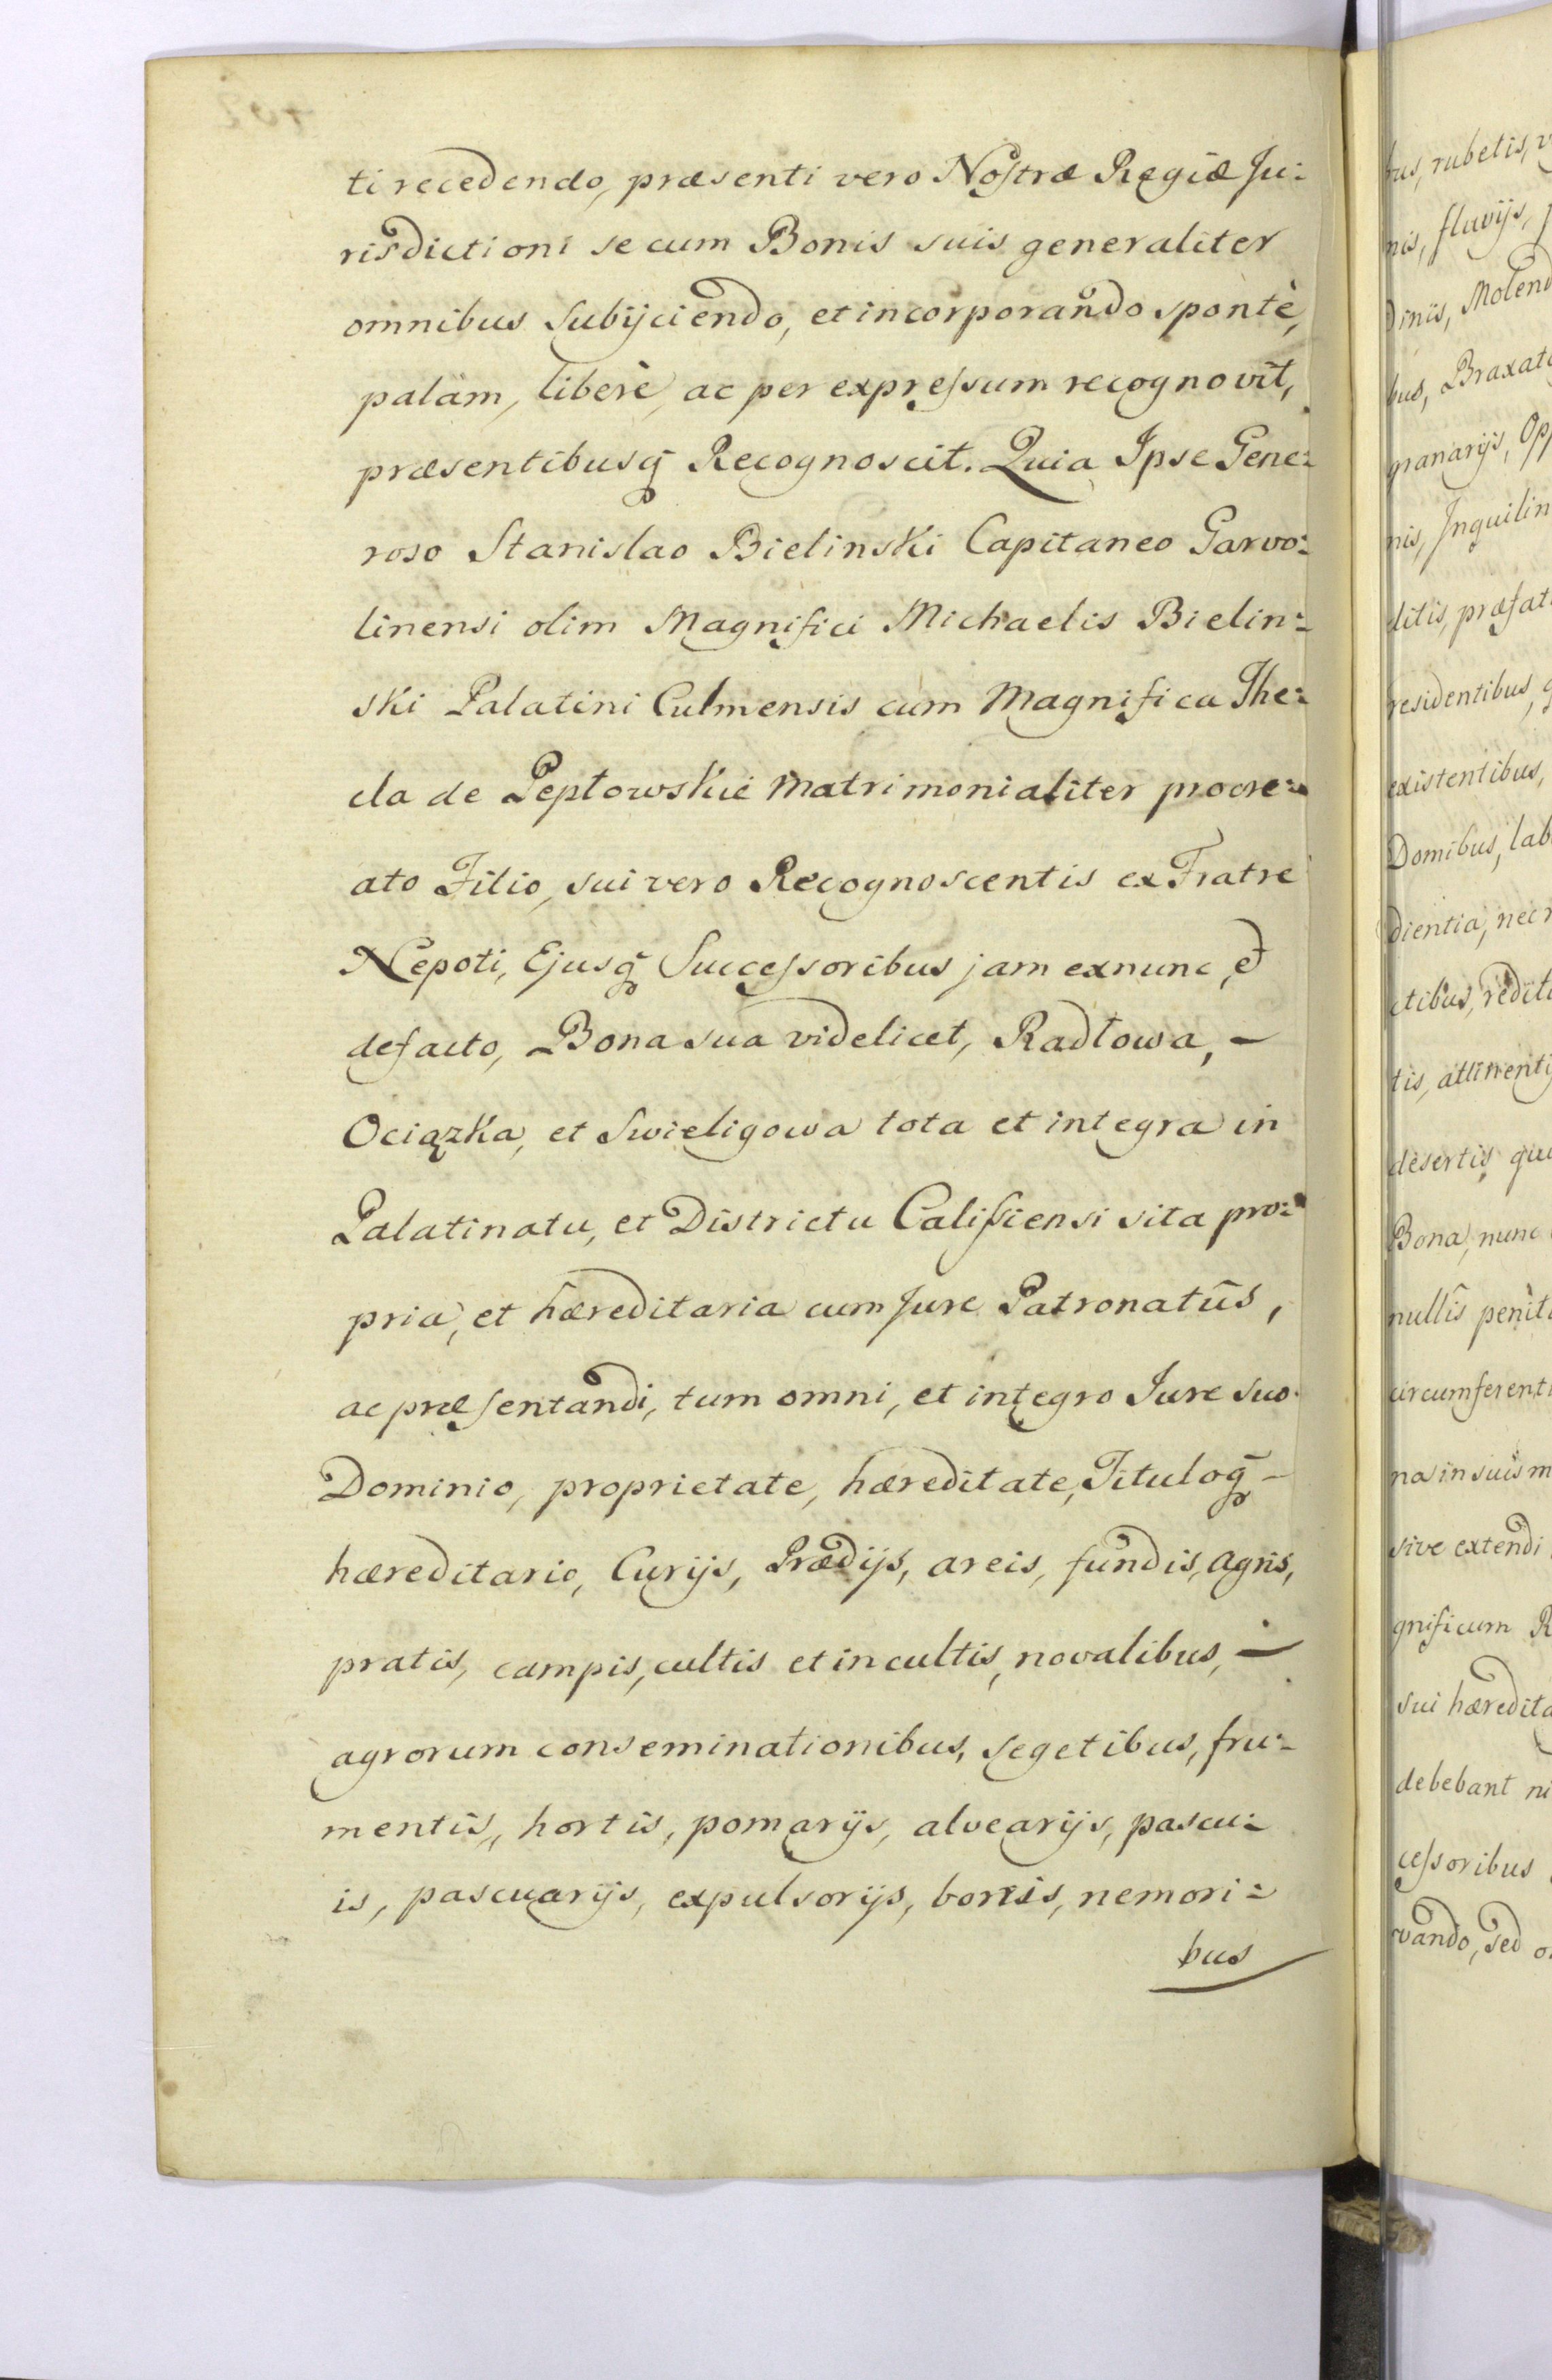 ti recedendo, præsenti vero Noſtræ Regiæ Ju:
risdictioni se cum Bonis suis generaliter
omnibus Subijciendo, et incorporando spontè,
palàm, liberè, ac per expreſsum recognovit,
præsentibusq̃ Recognoscit. Quia Ipse Gene:
roso Stanislao Bielinski Capitaneo Garvo:
linensi olim Magnifici Michaelis Bielin:
ski Palatini Culmensis cum Magnifica The:
cla de Pepłowskie Matrimonialiter procre:
ato Filio, sui vero Recognoscentis ex Fratre
Nepoti, Ejusq̃ Succeſsoribus jam exnunc, et
defacto, Bona sua videlicet, Radłowa, –
Ociązka, et Swieligowa tota et integra in
Palatinatu, et Districtu Caliſsiensi sita pro:
pria, et hæreditaria cum Jure Patronatûs,
ac præſentandi, tum omni, et integro Jure suo
Dominio, proprietate, hæreditate, Tituloq̃ –
hæreditario, Curijs, Prædijs, areis, fundis, agris,
pratis, campis, cultis et incultis, novalibus, –
agrorum conseminationibus, segetibus, fru:
mentis, hortis, pomarijs, alvearijs, pascu:
is, pascuarijs, expulsorijs, borris, nemori:
bus
bus, rubetis,
nis, fluvijs,
dinis, Molend
bus, Braxato
granarijs, Opp
nis, Inquilin
litis, præfat
residentibus,
existentibus,
Domibus, lab
dientia, nec
ctibus, redit
tis, attinenti
desertis, qu
Bona, nunc
nullis penit
circumferent
na in suis m
sive extendi
gnificum R
sui hæredita
debebant
ceſsoribus
vando, sed